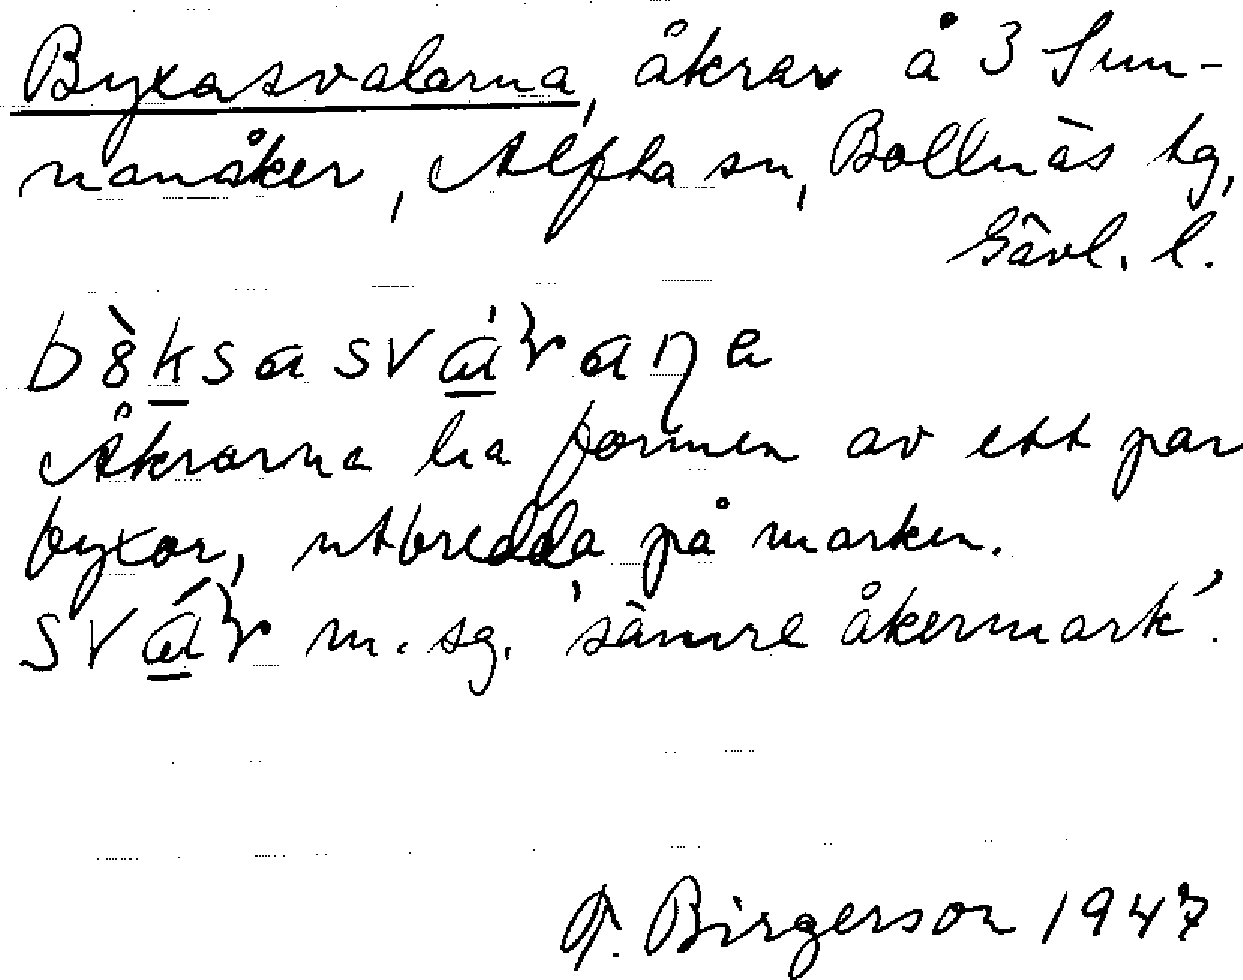 Byxasvalarna, åkrar å 3 Sun-
nanåker, Alfta sn, Bollnäs tg,
Gävl. l.
Åkrarna ha formen av ett par
byxor, utbredda på marken.
m. sg. 'sämre åkermark'.
Birgerson 1947